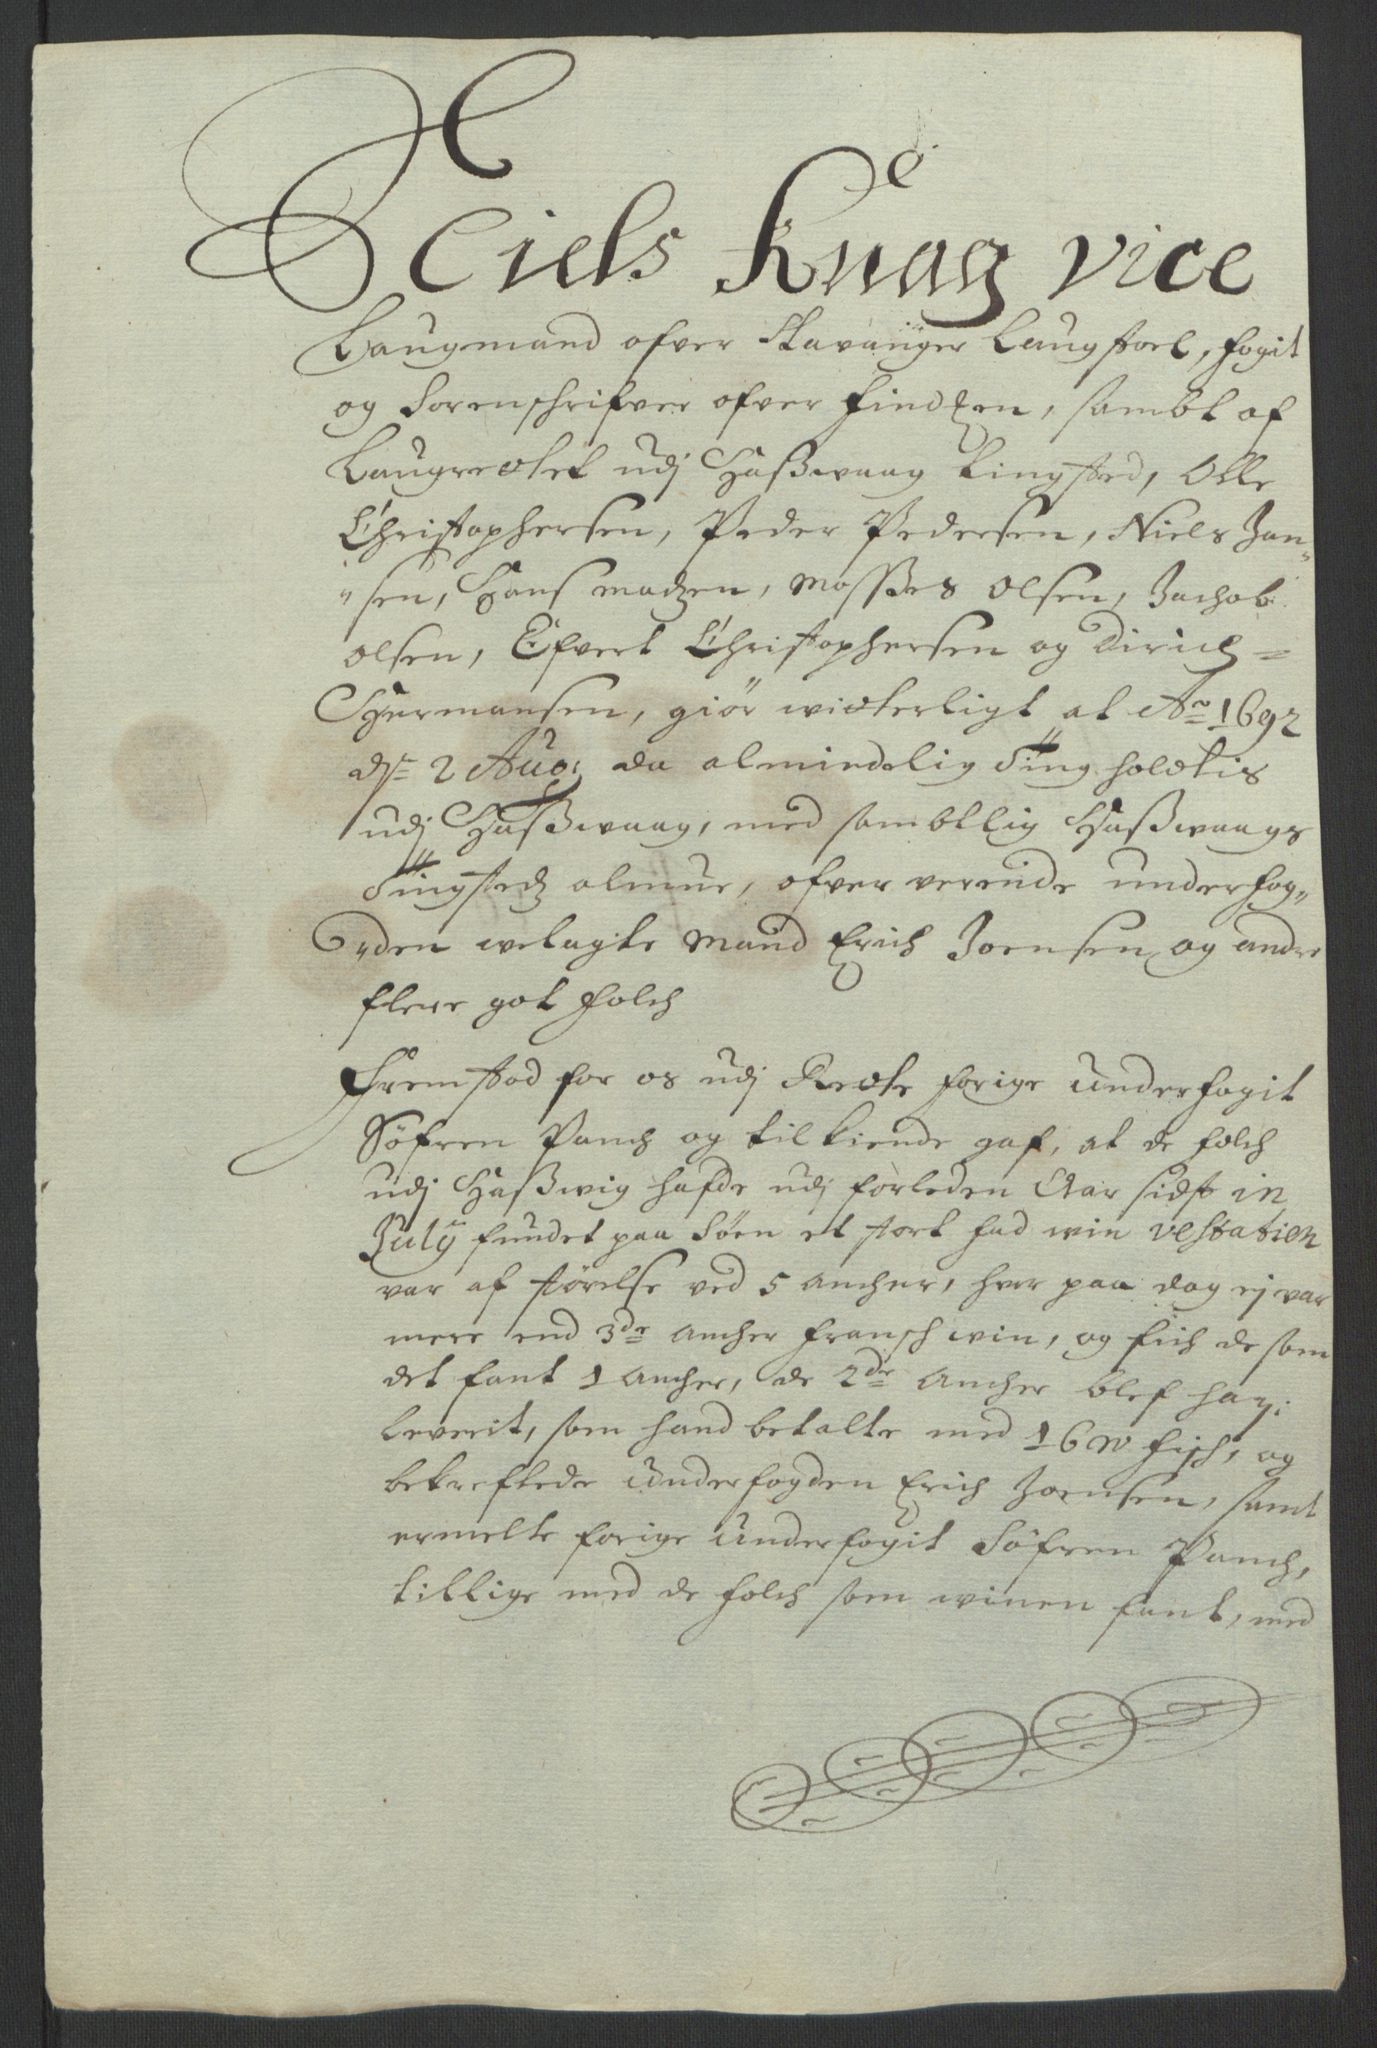 Niels Knag vice
Laugmand ofver Stavanger Laugstoel, fogit
og Sorenschrifver ofver Findmken, sambt af
Laugrettet udj Haßwaag Tingsted, Olle
Christophersen, Peder Pedersen, Niels Jan„
„sen, Hans Madzen, Moßes Olsen, Jachob
Olsen, Eifvert Christophersen og Dirich =
Hermansen, giør witterligt at Ao 1692
dn 2 Aug: da almindelig Ting holdtis
udj Haßwaag, med sambtlig Haßwaags
Tingstedz almue, ofververende underfog„
„den welagte Mand Erich Joensen og andre
flere got folch
Fremstod for os udj Rette forige underfogit
Søfren Panch og tilkiende gaf, at de folch
udj Haßwig hafde udj forleden Aar sidst in
July fundet paa Søen et stort fad win
var af størelse ved 5 Ancher, hvor paa dog ej var
mere end 3de Ancher fransch win, og fich de som
det fant 1 Ancher, de 2de Ancher blef ham
leverit, som hand betalte med 16 W fisch, og
bekreftede Underfogden Erich Joensen, samt
ermelte forige Underfogit Søfren Panch,
tillige med de folch som winen fant, med